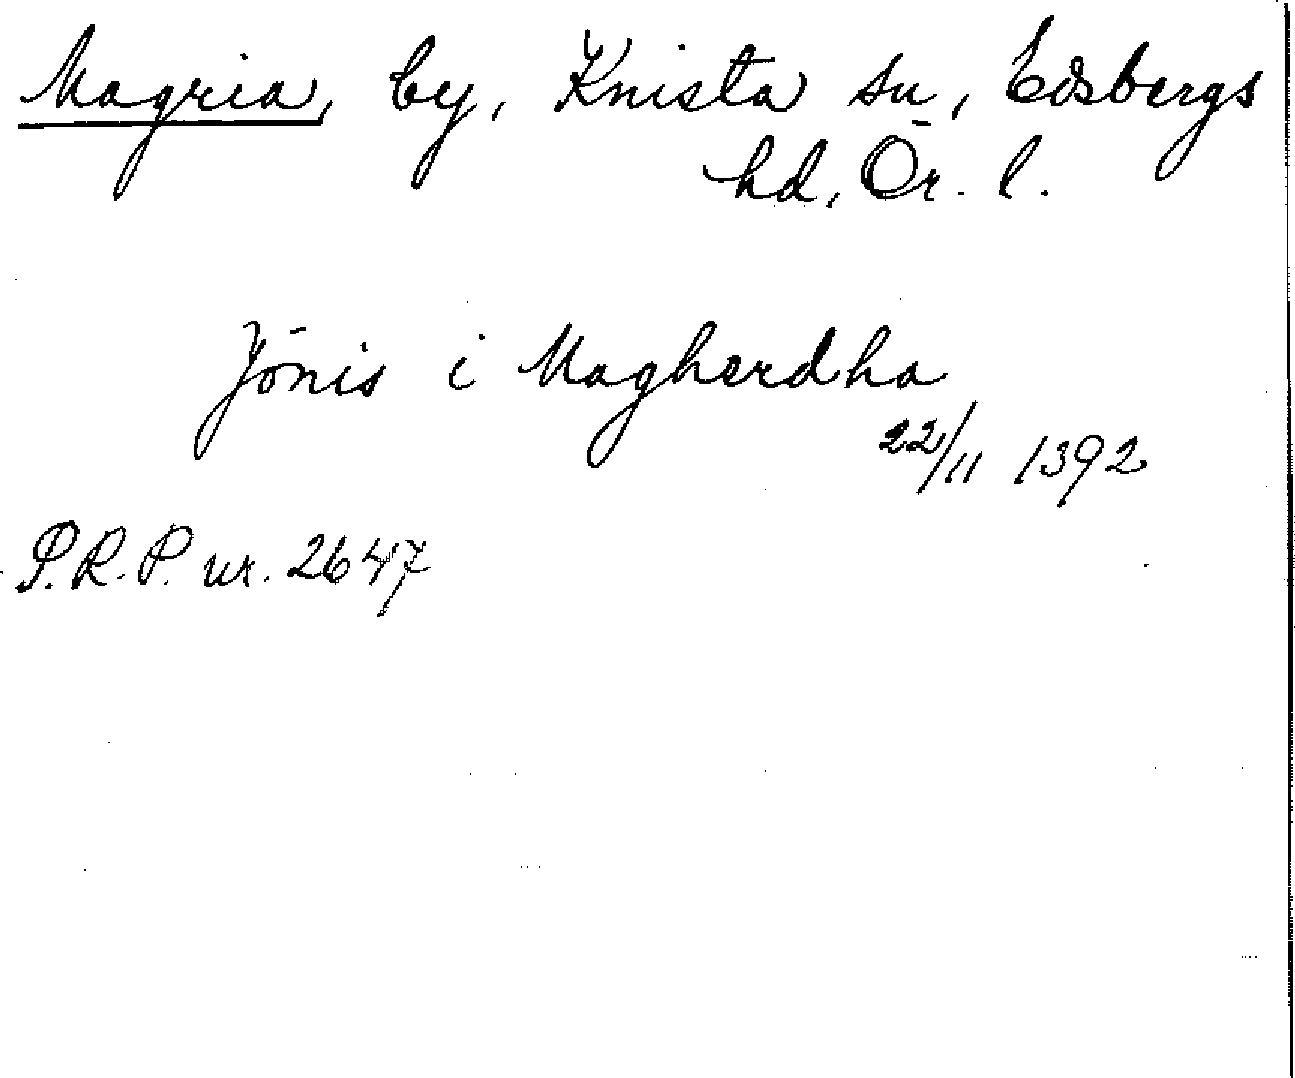 Magria, by, Knista sn, Edsbergs
hd, Ör. l.
Jönis i Magherdha
22/11 1392
P.R.P. nr. 2647